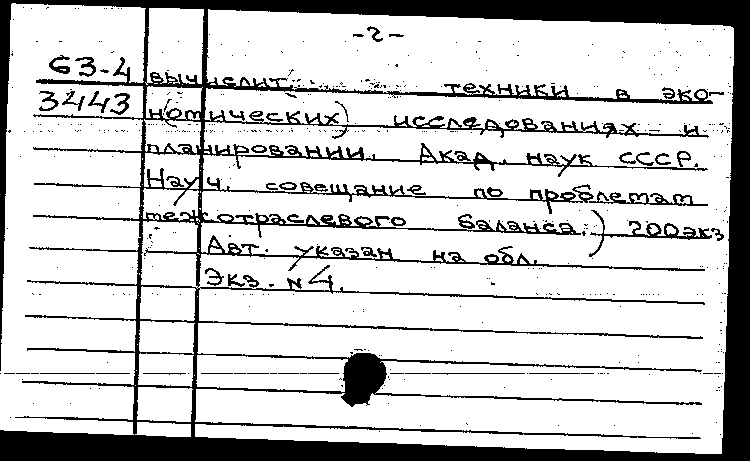 -2-
63-4 вычислит. техники в эко-
3443 номических) исследованиях и
планировании. Акад. наук СССР.
Науч. совещание по проблемам
межотраслевого баланса.) 200экз
Авт. указан на обл.
Экз. N4.